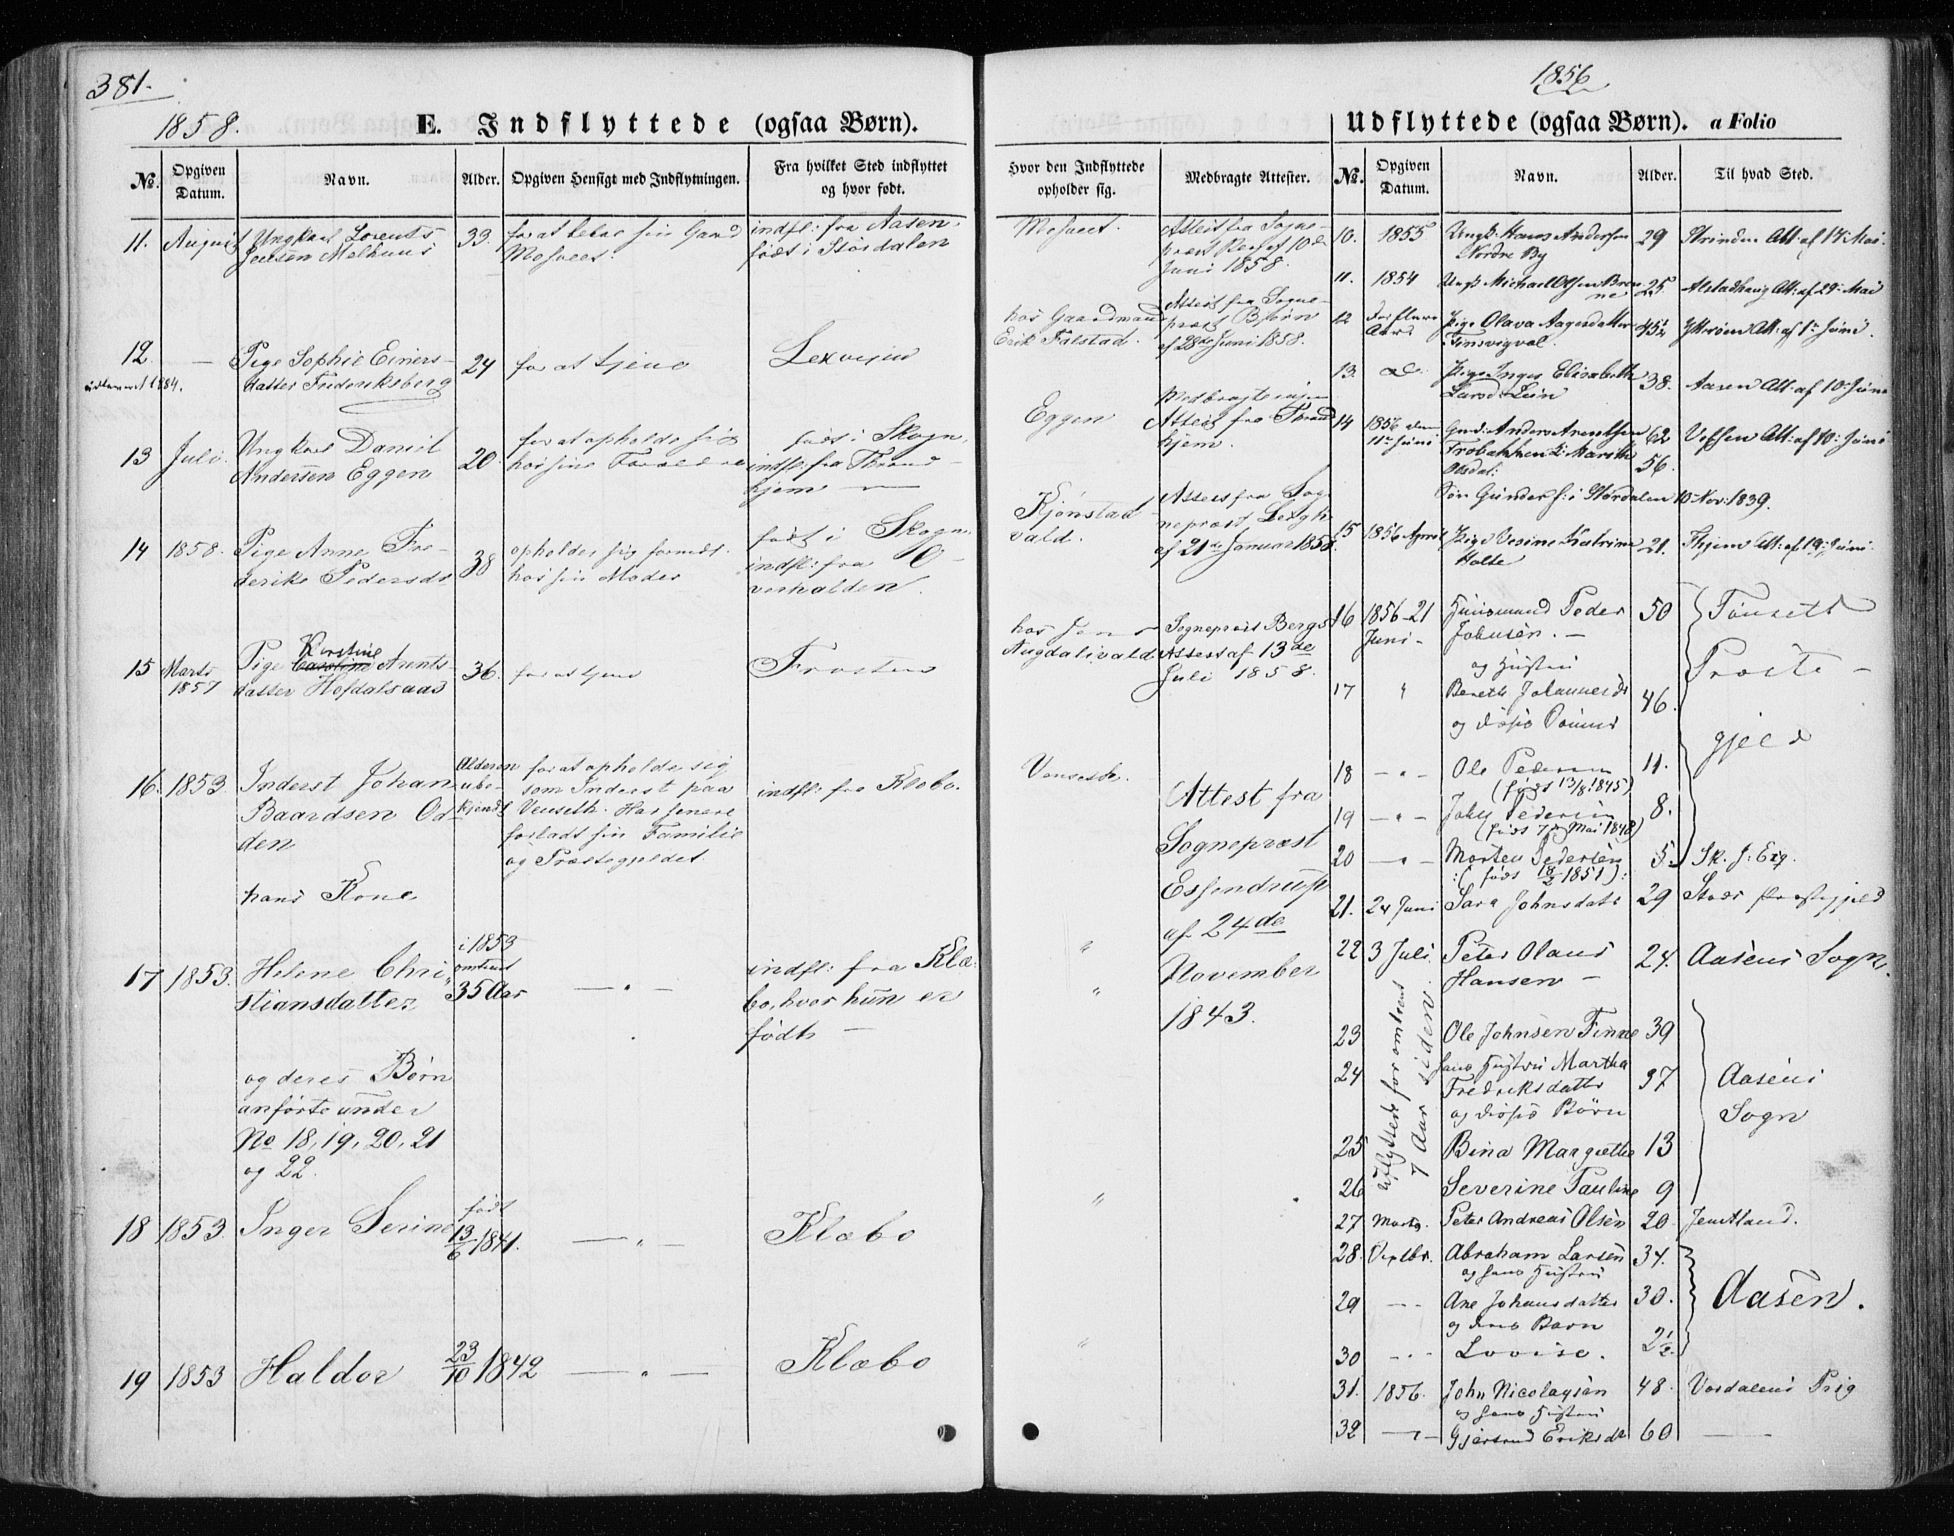 381.
1858.
E. Indflyttede (ogsaa Børn).
No.
Opgiven Datum.
Navn.
Alder.
Opgiven Hensigt med Indflytningen.
Fra hvilket Sted indflyttet og hvor født.
11. August Ungkarl Lorents 33. for at sin Gaard indfl: fra Aasen,
Jensen Melhuus født i Størdalen
12. — Pige Sophie Einers- 24 for at tjene Lexvigen
1884. datter Frederiksberg
13 Juli. Ungkarl Daniel 20. for at opholde sig født i Skogn,
Andersen Eggen hos sine Forældre indfl: fra Thrond-
hjem —
14 1858. Pige Anne Fre- 38 opholder sig født i Skogn,
derike Pedersd: hos sin Moder indfl: fra O-
verhalden.
15 Marts Pige Kirstine Arnts- 36. for at tjene Frosten
1857 datter Hofdalsaas
16. 1853. Inderst Johan Alderen for at opholde sig indfl: fra Klæbo.
Baardsen Od- ube- som Inderst paa
den kjendt Venseth. Har senere
forladt sin Familie
og Præstegjeldet.
hans Kone i 1853
17 1853. Helene Chri- omtrent — " — indfl: fra Klæ-
stiansdatter 35 Aar bo, hvor hun er
født —
og deres Børn
anførte under
No 18, 19, 20, 21
og 22.
18 1853. Inger Serine født 13/6 1841. — " — Klæbo
19 1853 Haldor 23/10 1842 — " — Klæbo
1856
Udflyttede (ogsaa Børn). a Folio
Hvor den Indflyttede opholder sig.
Medbragte Attester.
No.
Opgiven Datum.
Navn.
Alder.
Til hvad Sted.
Attest fra Sogne-
præst af 10de
Juni 1858.
hos Gaardmand
Erik Falstad.
Attest fra Sogne-
præst Bjørn
af 28de Juni 1858.
Eggen
Medbragte ingen
Attest fra Thrond-
hjem.
Kjønstad-
vald.
Attest fra Sog-
nepræst
af 21de Januar 1858.
hos Jens
Augdalsvald
Sognepræst Bergs
Attest af 13de
Juli 1858.
Venseth.
Attest fra
Sognepræst
Essendrup
af 24de
November
1843.
10. 1855 Ungk: Hans Andersen 29 Strinden Att: af 14. Mai.
Nordre By
11. 1854 Ungk Michael Olsen 25. Alstadhaug Att: af 29: Mai
12 for flere Pige Olava Aagesdatter 45½ Ytterøen Att: af 1ste Juni.
Aar Finsvigval.
13. Pige Inger Elisabeth 38. Aasen Att: af 10: Juni
Larsd:
14 1856 den Gmd: Anders Arentsen 62 Vefsen Att: af 10: Juni
11te Juni Marith 56.
Olsdat:
Søn Gunder f: i Størdalen 10 Nov: 1839.
15 1856 April Pige Katrine 21. Thjem Att: af 19: Juni.
Holte
16 1856 21 Huusmand Peder 50 Tønseth
Juni - Johnsen. — Præste-
og Hustru gjeld
17 " Bereth Johannesd: 46.
og disses
18 — " — Ole Pedersen 11.
(født 13/8 1845)
19 — " — John Pedersen 8.
(født 7de Mai 1848)
20 — " — Morten Pedersen 5. Sk. f: Exp.
:( født 18/2 1851 ):
21. 24 Juni Sara Johnsdatt: 29 Præstegjeld
22 3 Juli. Peter Olaus 24. Aasens Sogn.
Hansen —
udflyttede for omtrent
7 Aar siden.
23 Ole Johnsen Finne 39 Aasens
24 hans Hustru Martha Sogn
Fredriksdatter 37
og disses Børn
25 Bina Margrethe 13
26 Severine Pauline 9
27 Marts. Peter Andreas Olsen 20 Jemtland.
28. Septbr. Abraham Larsen 34. Aasen.
og hans Hustru
29 — Ane Johansdatter 30.
og deres Barn
30 — Lovise. 2½
31. 1856. John Nicolaysen 48. Værdalens Prgj
og hans Hustru
32 — Gjertrud Eriksd: 60 —